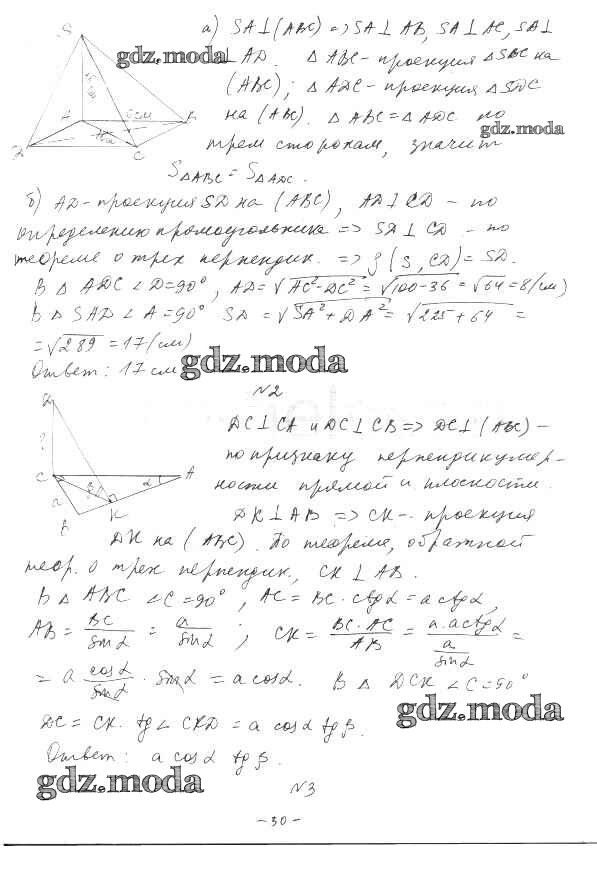 а) SA⊥(ABC) => SA⊥AB, SA⊥AC, SA⊥
⊥AD. △ABC - проекция △SBC на
(ABC); △ADC - проекция △SDC
на (ABC). △ABC = △ADC по
трем сторонам, значит
S△ABC = S△ADC.
S
A
B
C
6см
gdz.moda
gdz.moda
б) AD - проекция SD на (ABC), AD⊥CD - по
определению прямоугольника => SD⊥CD - по
теореме о трех перпендик. => ρ(S, CD) = SD.
В △ADC ∠D=90°, AD=√AC²-DC² = √100-36 = √64 = 8(см)
В △SAD ∠A=90° SD = √SA²+DA² = √225+64 =
= √289 = 17(см)
Ответ: 17 см
gdz.moda
№2
D
?
C
a
β
α
A
B
K
DC⊥CA и DC⊥CB => DC⊥(ABC) -
по признаку перпендикуляр-
ности прямой и плоскости.
DK⊥AB => CK - проекция
DK на (ABC). По теореме, обратной
теор. о трех перпендик., CK⊥AB.
В △ABC ∠C=90°, AC = BC·ctgα = a ctgα,
AB = BC/sinα = a/sinα; CK = BC·AC/AB = a·a ctgα/(a/sinα) =
= a cosα/sinα · sinα = a cosα. В △DCK ∠C=90°
DC = CK·tg∠CKD = a cosα tgβ.
gdz.moda
Ответ: a cosα tgβ.
gdz.moda
№3
-30-